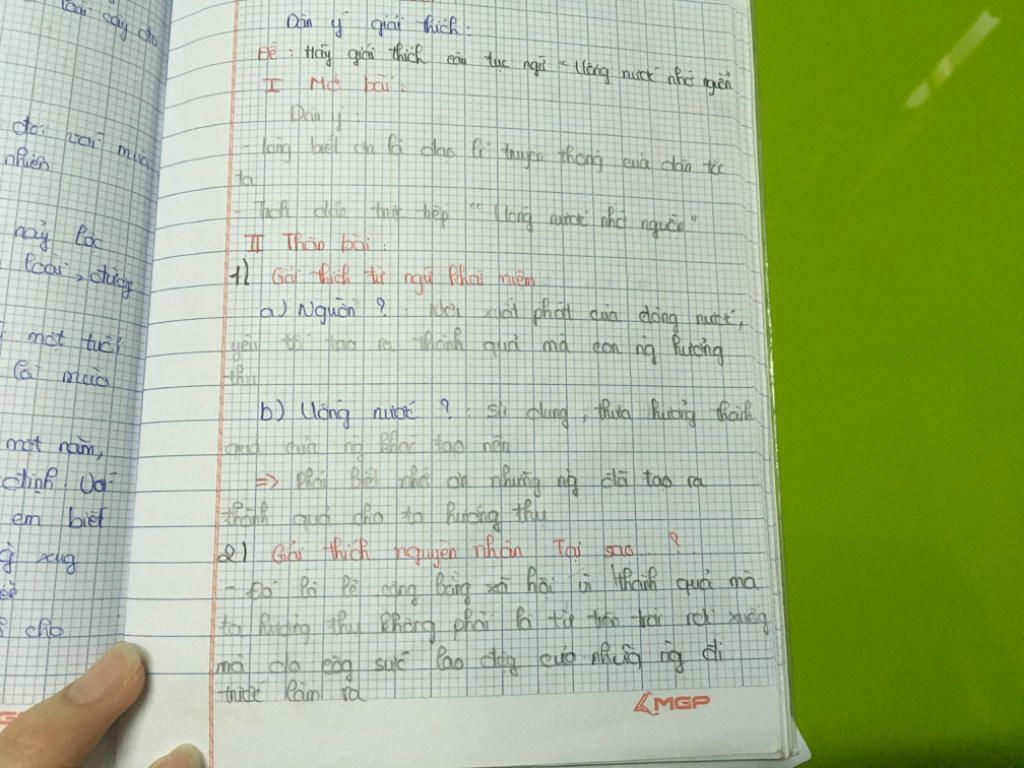 loài cây cho
đối với mùa
nhiên
này lọc
loài, đường
một tuổi
là mùa
một năm,
định. Với
em biết
xug
cho
Dàn ý giải thích:
Đề: Hãy giải thích câu tục ngữ "Uống nước nhớ nguồn
I Mở bài:
Dàn ý:
- lòng biết ơn là đạo lí truyền thống của dân tộc
ta
- Trích dẫn trực tiếp "Uống nước nhớ nguồn"
II Thân bài:
1) Giải thích từ ngữ khái niệm
a) Nguồn?: Nơi xuất phát của dòng nước,
yếu tố tạo ra thành quả mà con ng hưởng
thụ
b) Uống nước?: Sử dụng, thừa hưởng thành
quả của ng khác tạo nên
=> phải biết nhớ ơn những ng đã tạo ra
thành quả cho ta hưởng thụ
2) Giải thích nguyên nhân Tại sao?
- Đó là lẽ công bằng xã hội vì thành quả mà
ta hưởng thụ không phải là từ trên trời rơi xuống
mà do công sức lao động của những ng đi
trước làm ra
MGP